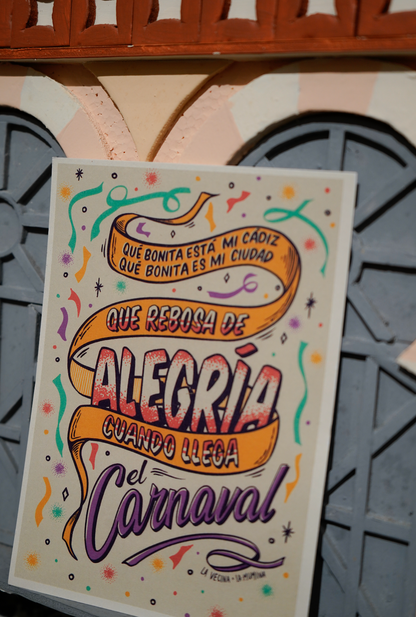 QUÉ BONITA ESTÁ MI CÁDIZ
QUÉ BONITA ES MI CIUDAD
QUE REBOSA DE
ALEGRÍA
CUANDO LLEGA
el
Carnaval
LA VECINA